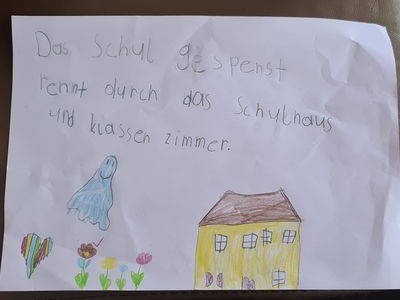 Das Schul gespenst
rennt durch das Schulhaus
und klassen zimmer.